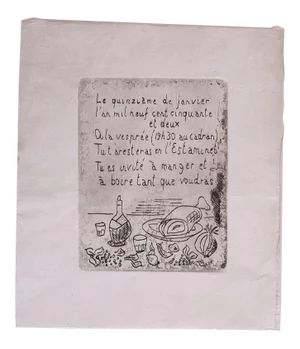 Le quinzième de janvier
l'an mil neuf cent cinquante
et deux
A la vesprée (19h30 au cadran),
Tu t'aresteras en l'Estaminet
Tu es invité à manger et
à boire tant que voudras